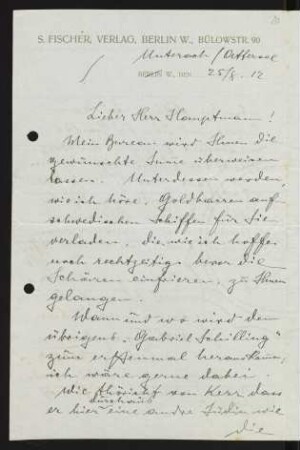 S. FISCHER, VERLAG, BERLIN W., BÜLOWSTR. 90
Unterach / Attersee
BERLIN W., DEN 25/8. 12
Lieber Herr Hauptmann!
Mein Bureau wird Ihnen die
gewünschte Summe überweisen
lassen. Unterdessen werden,
wie ich höre, Goldbarren auf
schwedischen Schiffen für Sie
verladen, die, wie ich hoffe
noch rechtzeitig bevor die
Schären einfrieren, zu Ihnen
gelangen.
Wann und wo wird denn
übrigens „Gabriel Schilling"
zum erstenmal herauskommen,
ich wäre gerne dabei.
Wie von Kerr dass
durchaus
er hier eine andre Indin wie
die